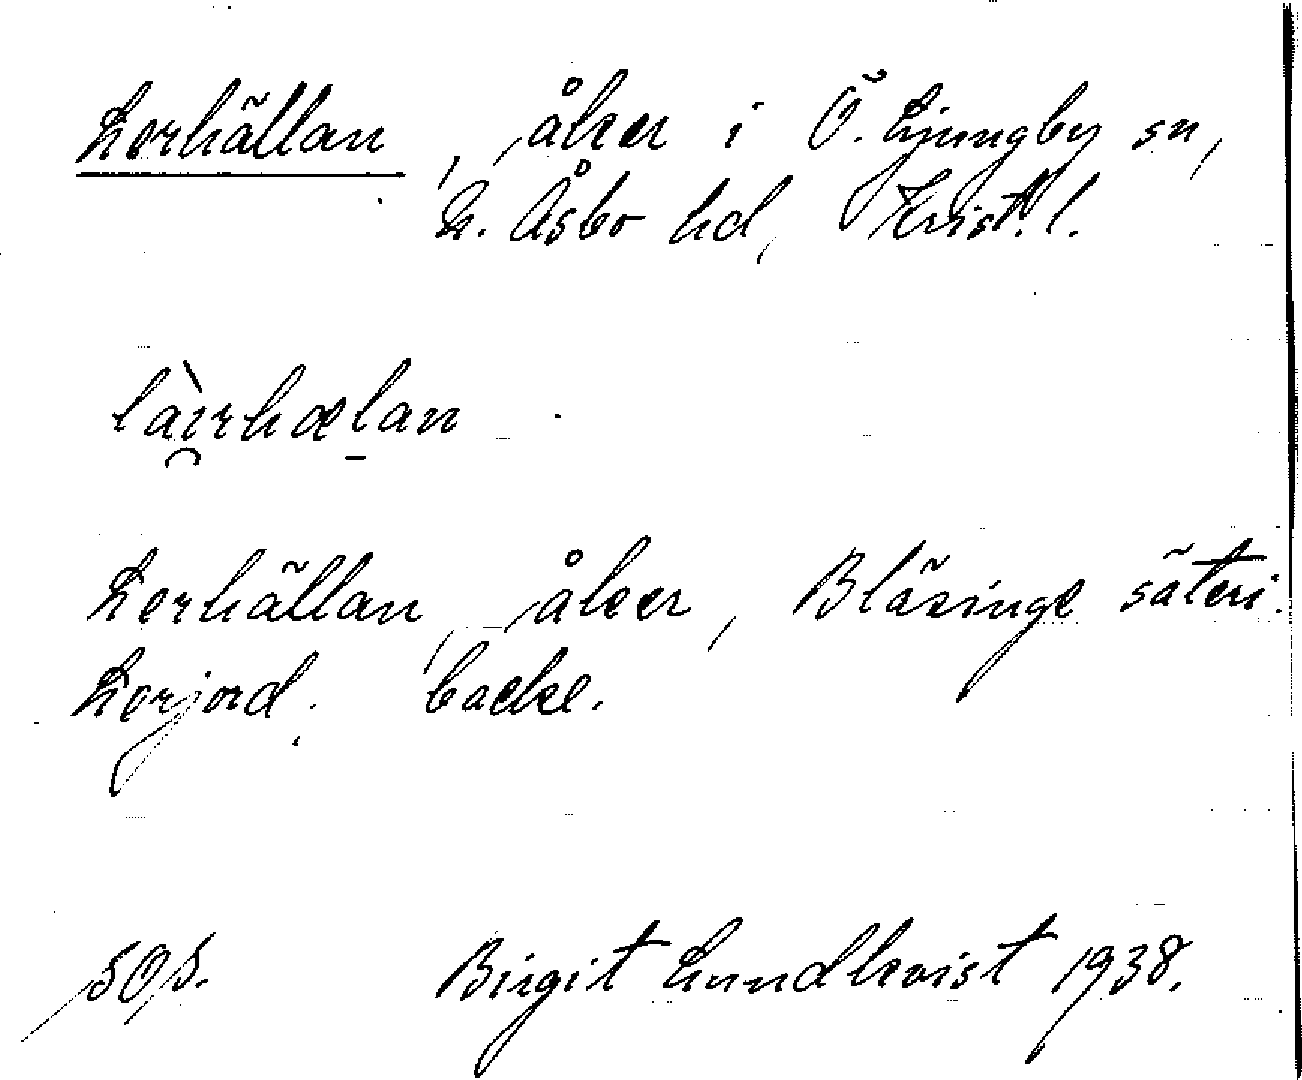 Lerhällan, åker i Ö. Ljungby sn,
N. Åsbo hd, Krist. l.
làirhælan
Lerhällan, åker, Bläsinge säteri.
Lerjord. backe.
Birgit Lundkvist 1938.